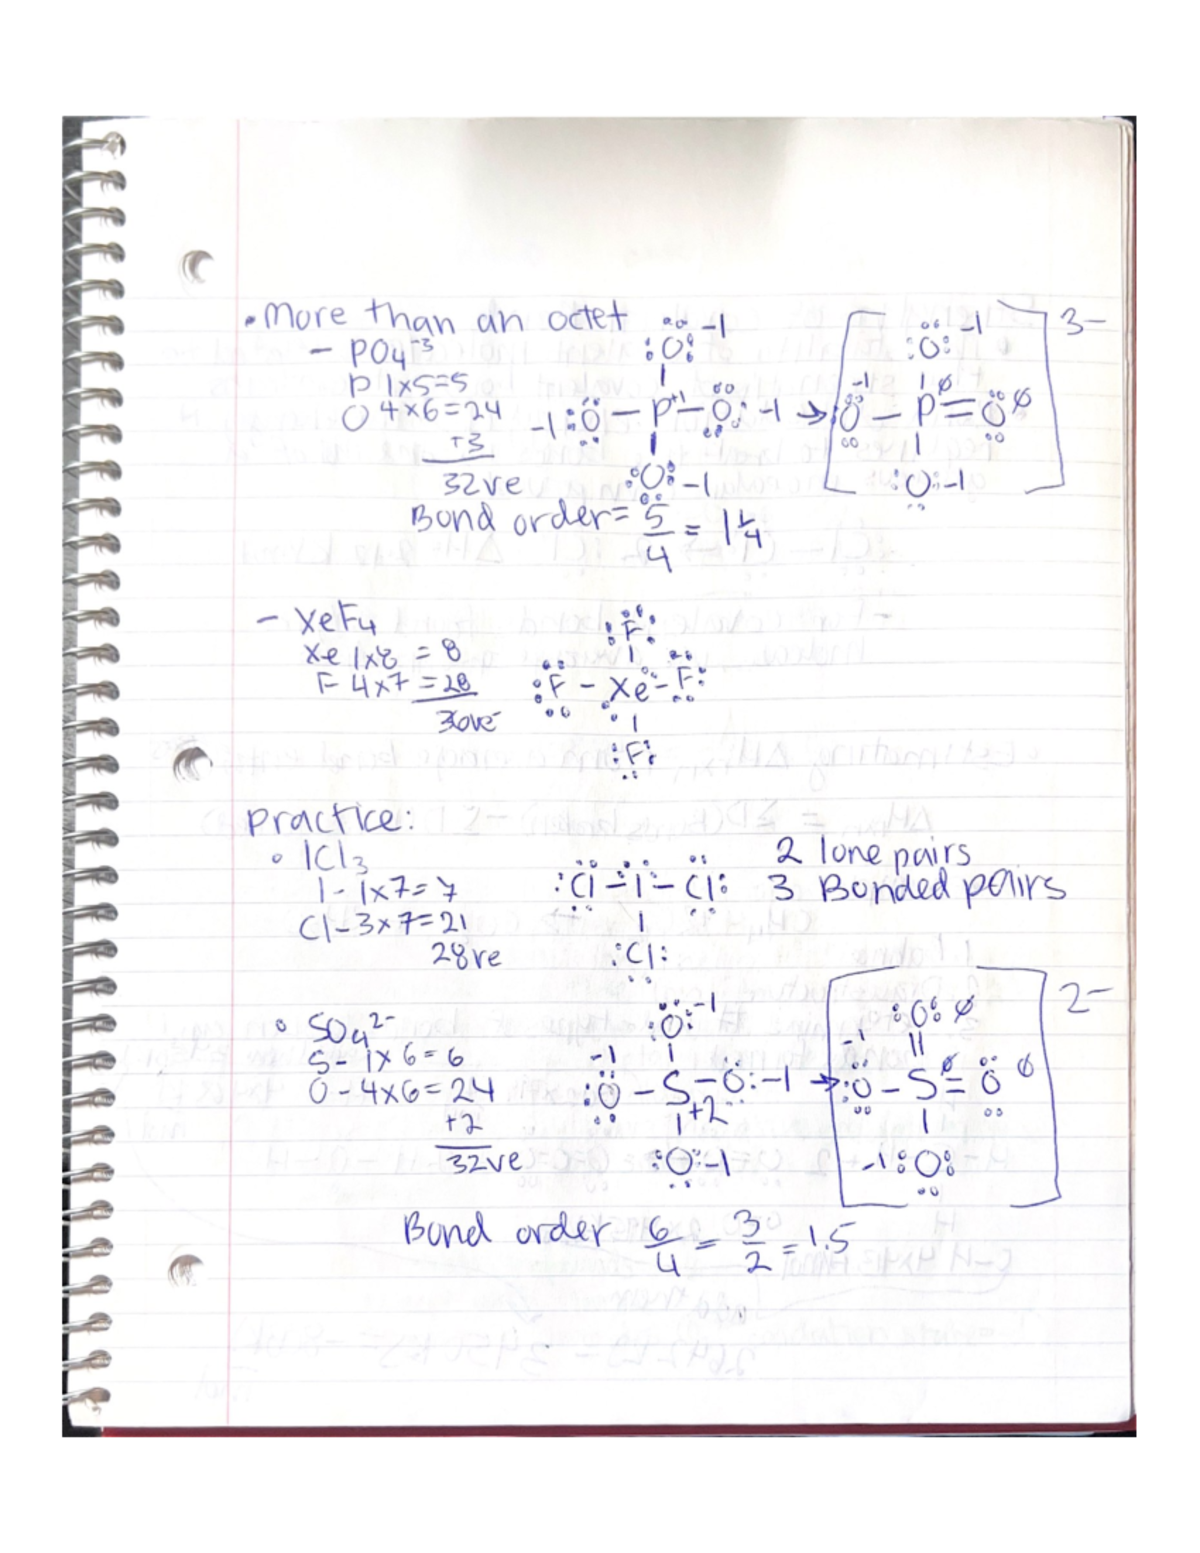 • More than an octet
- PO₄⁻³
P 1x5=5
O 4x6=24
+3
32ve
Bond order = 5/4 = 1 1/4
:O: -1
-1 :O - P+1 - O: -1 →
:O: -1
[ :O: -1
-1 :O - P ∅ = O ∅
:O: -1 ] 3-
- XeF₄
Xe 1x8 = 8
F 4x7 = 28
36ve
:F:
:F - Xe - F:
:F:
Practice:
∘ ICl₃
I - 1x7=7
Cl - 3x7=21
28ve
:Cl - I - Cl:
:Cl:
2 lone pairs
3 Bonded pairs
∘ SO₄²⁻
S - 1x6=6
O - 4x6=24
+2
32ve
:O: -1
-1 :O - S - O: -1 →
+2
:O: -1
[ :O: ∅
-1 :O - S ∅ = O ∅
-1 :O: ] 2-
Bond order 6/4 = 3/2 = 1.5